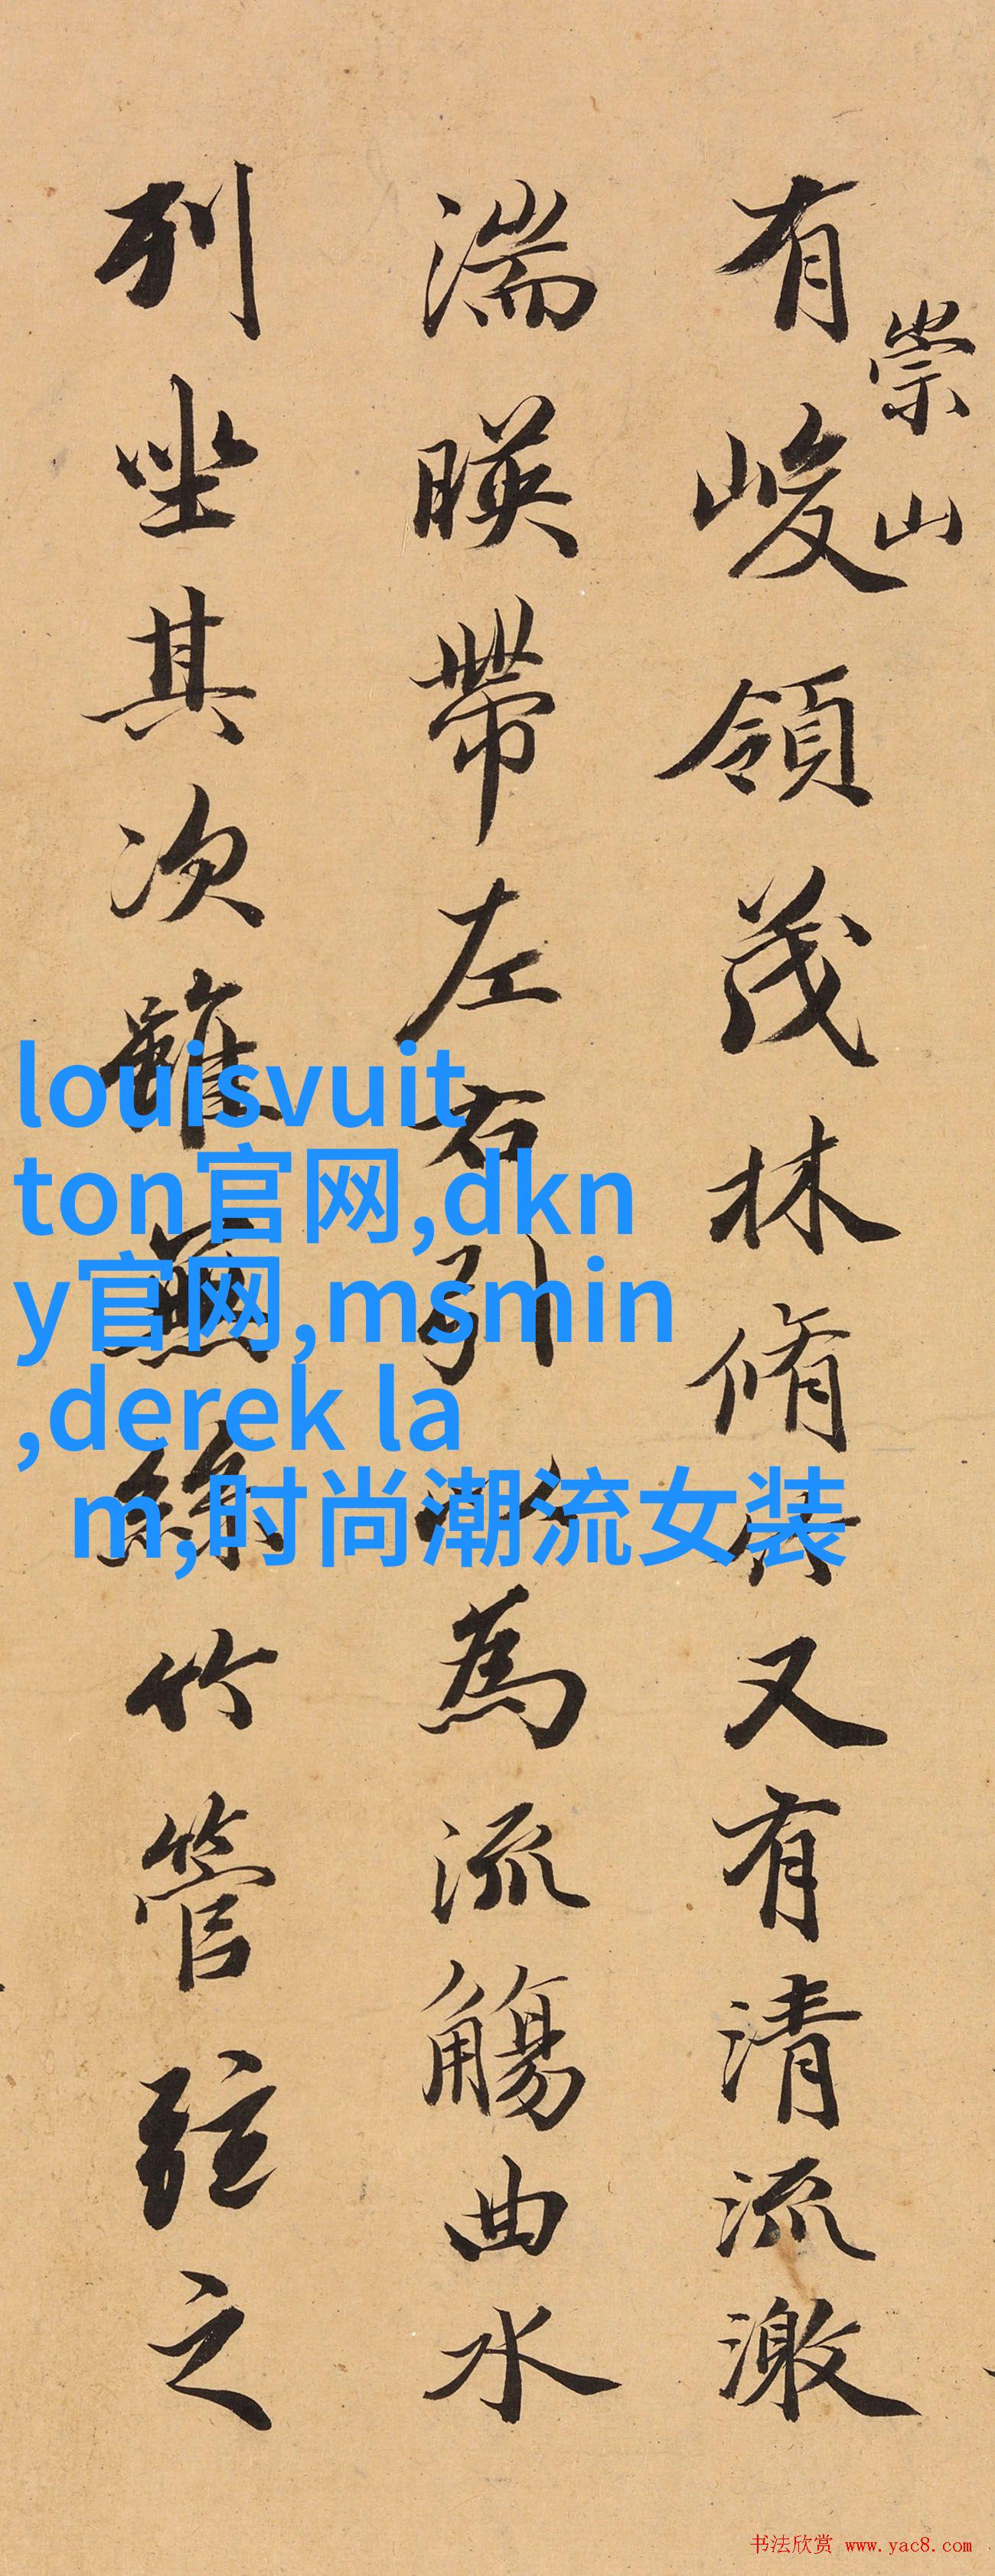 崇山
有峻領茂林脩竹又有清流激
湍暎帶左右引以為流觴曲水
列坐其次雖無絲竹管弦之
louisvuit
ton官网,dkn
y官网,msmin
,derek la
m,时尚潮流女装
书法欣赏 www.yac8.com